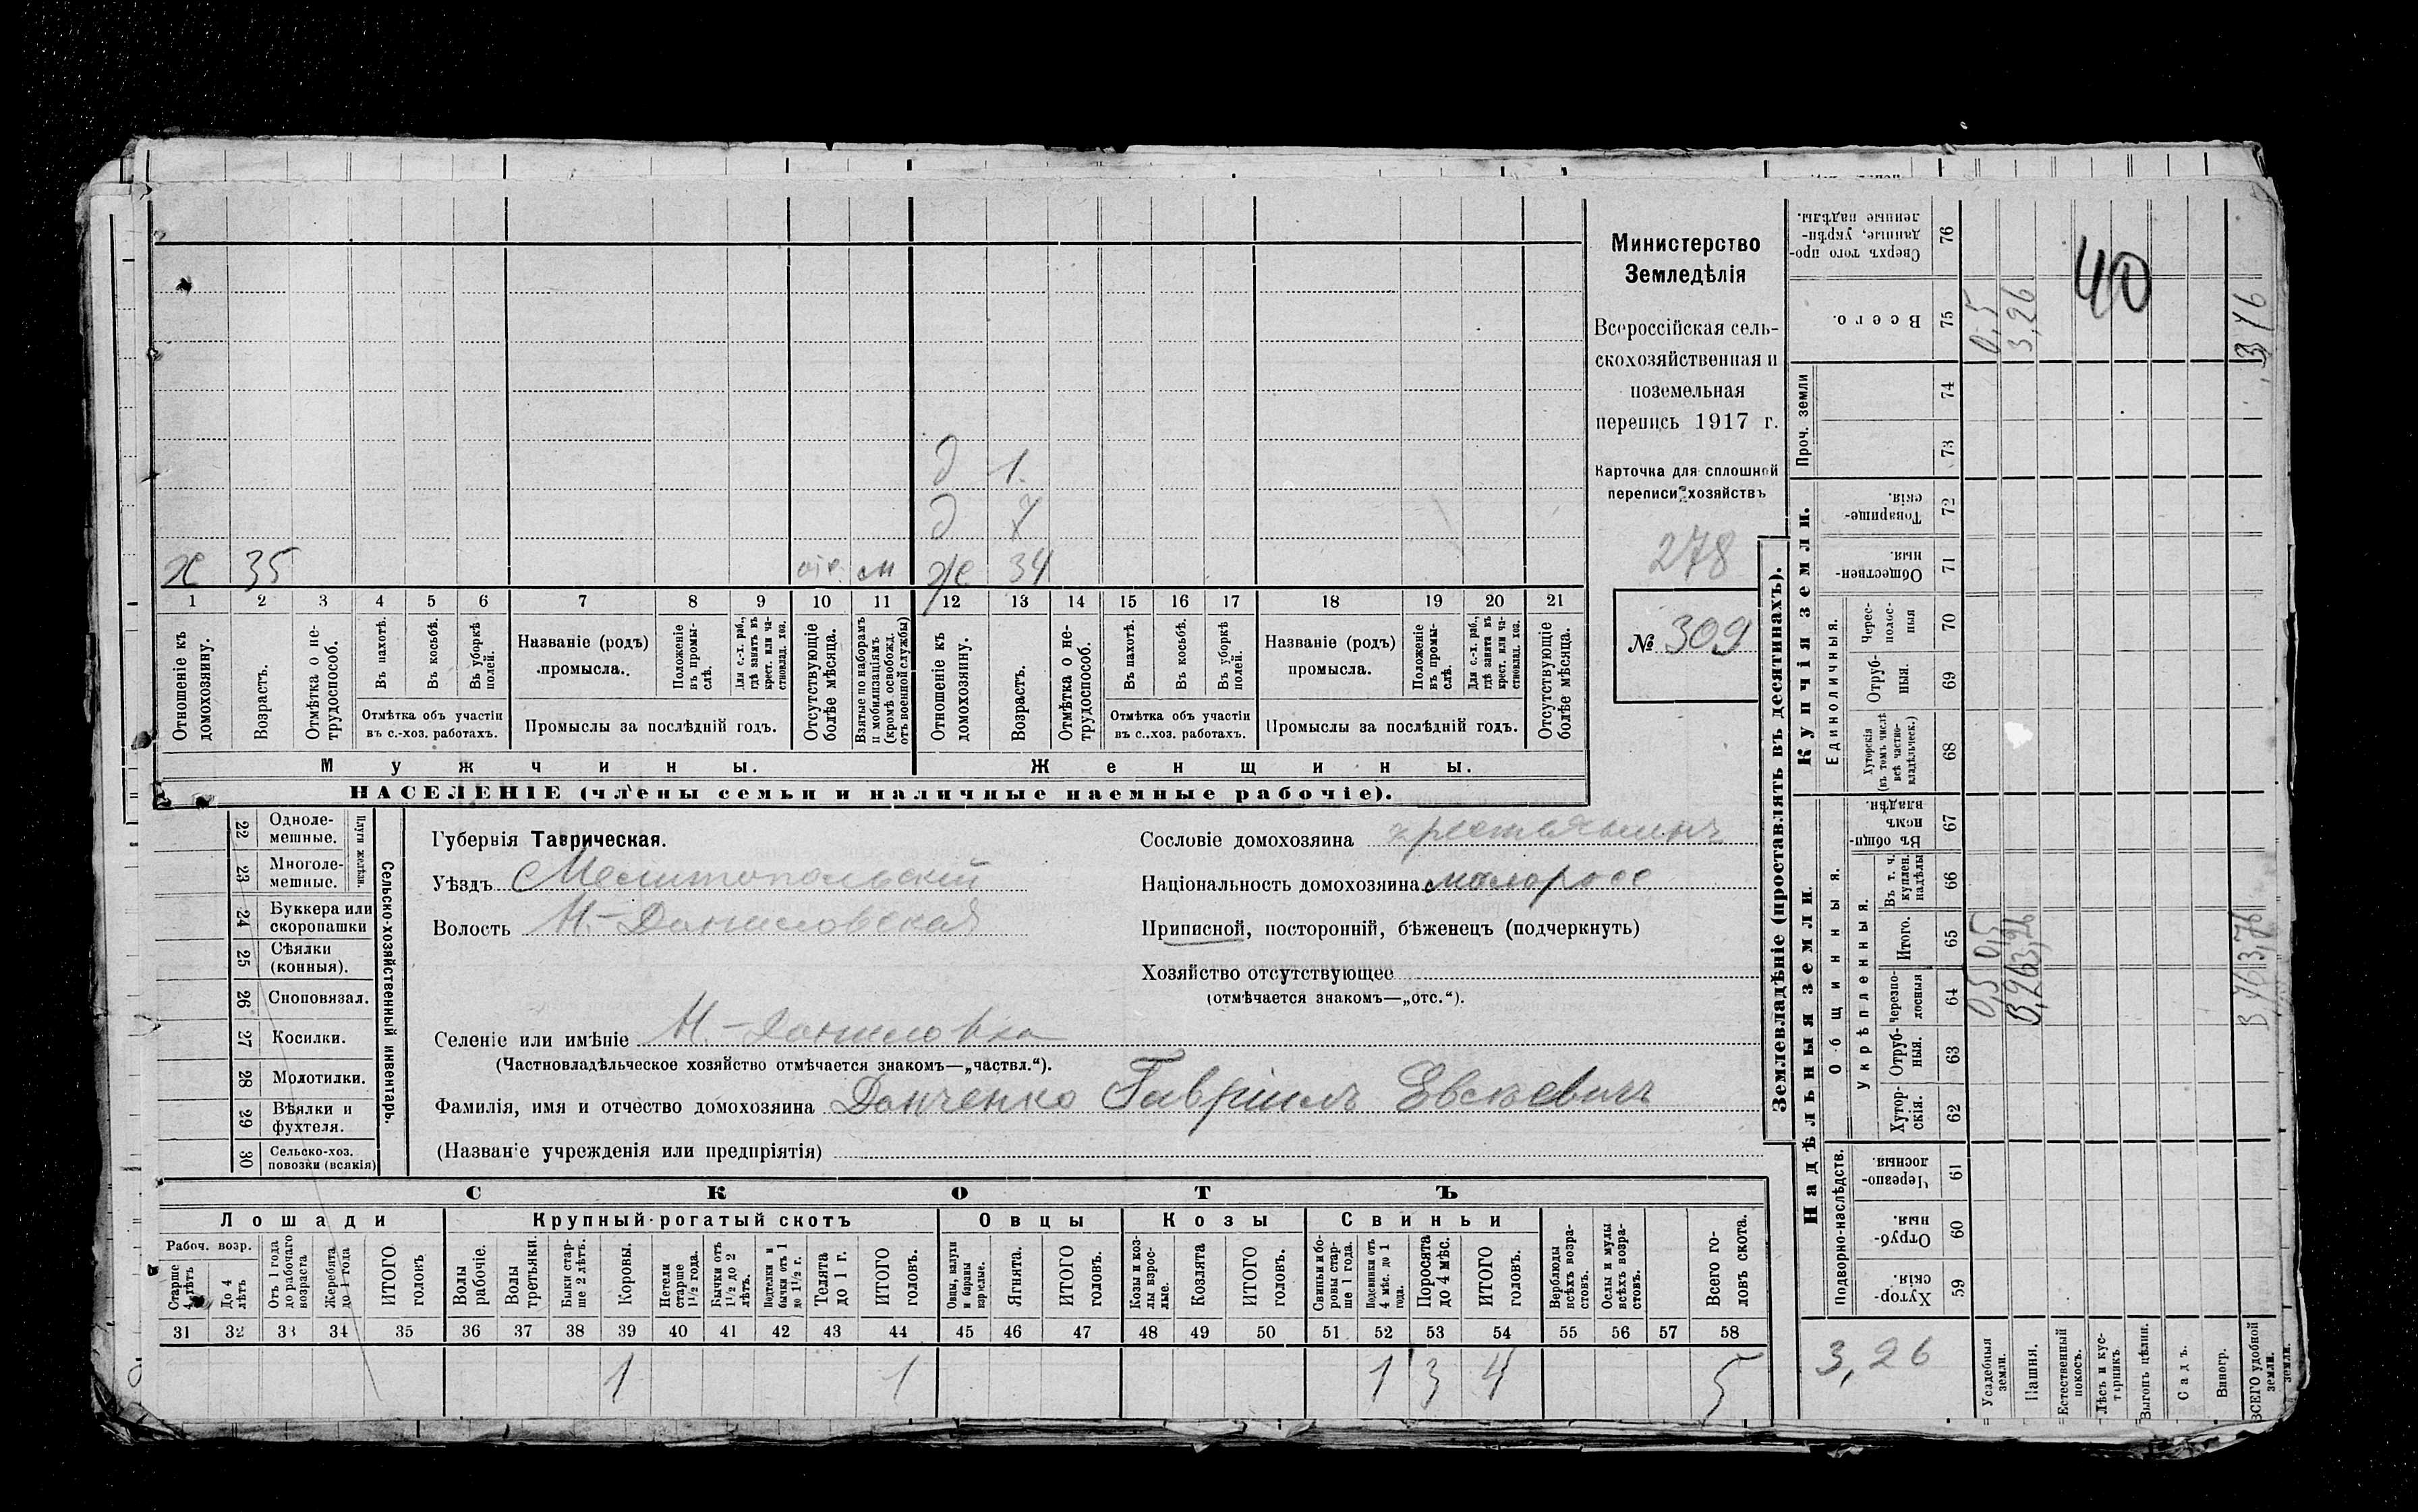 Министерство
Земледѣлія
Всероссійская сель-
скохозяйственная и
поземельная
перепись 1917 г.
Карточка для сплошной
переписи хозяйствъ
278
№ 309
40
д 1
д 7
х 35 отс. м ж 34
1 2 3 4 5 6 7 8 9 10 11 12 13 14 15 16 17 18 19 20 21
Отношеніе къ домохозяину.
Возрастъ.
Отмѣтка о не-трудоспособ.
Въ пахотѣ.
Въ косьбѣ.
Въ уборкѣ полей.
Отмѣтка объ участіи въ с.-хоз. работахъ.
Названіе (родъ) промысла.
Положеніе въ промы-слѣ.
Для с.-х. раб., гдѣ занятъ въ крест. или ча-стновлад. хоз.
Промыслы за послѣдній годъ.
Отсутствующіе болѣе мѣсяца.
Взятые по наборамъ и мобилизаціямъ (кромѣ освобожд. отъ военной службы)
Отношеніе къ домохозяину.
Возрастъ.
Отмѣтка о не-трудоспособ.
Въ пахотѣ.
Въ косьбѣ.
Въ уборкѣ полей.
Отмѣтка объ участіи въ с..хоз. работахъ.
Названіе (родъ) промысла.
Положеніе въ промы-слѣ.
Для с.-х. раб., гдѣ занята въ крест. или ча-стновлад. хоз.
Промыслы за послѣдній годъ.
Отсутствующіе болѣе мѣсяца.
Мужчины. Женщины.
НАСЕЛЕНІЕ (члены семьи и наличные наемные рабочіе).
22 Одноле-мешные.
23 Многоле-мешные.
Плуги желѣзн.
24 Буккера или скоропашки
25 Сѣялки (конныя).
26 Сноповязал.
27 Косилки.
28 Молотилки.
29 Вѣялки и фухтеля.
30 Сельско-хоз. повозки (всякія)
Сельско-хозяйственный инвентарь.
Губернія Таврическая.
Уѣздъ Мелитопольскій
Волость Н.-Даниловская
Селеніе или имѣніе Н.-Даниловка
(Частновладѣльческое хозяйство отмѣчается знакомъ—„частвл.“).
Фамилія, имя и отчество домохозяина Данченко Гавріилъ Евсѣевичъ
(Названіе учрежденія или предпріятія)
Сословіе домохозяина крестьянинъ
Національность домохозяина малоросс
Приписной, посторонній, бѣженецъ (подчеркнуть)
Хозяйство отсутствующее
(отмѣчается знакомъ—„отс.“).
СКОТЪ
Лошади Крупный рогатый скотъ Овцы Козы Свиньи
Рабоч. возр.
Старше 4 лѣтъ
До 4 лѣтъ
Отъ 1 года до рабочаго возраста
Жеребята до 1 года
ИТОГО головъ
Волы рабочіе.
Волы третьяки.
Быки стар-ше 2 лѣтъ.
Коровы.
Нетели старше 1 1/2 года.
Бычки отъ 1 1/2 до 2 лѣтъ.
Подтелки и бычки отъ 1 до 1 1/2 г.
Телята до 1 г.
ИТОГО головъ.
Овцы, валухи и бараны взрослые.
Ягнята.
ИТОГО головъ.
Козы и коз-лы взрос-лые.
Козлята
ИТОГО головъ.
Свиньи и бо-ровы стар-ше 1 года.
Подсвинки отъ 4 мѣс. до 1 года.
Поросята до 4 мѣс.
ИТОГО головъ.
Верблюды всѣхъ возра-стовъ.
Ослы и мулы всѣхъ возра-стовъ.
Всего го-ловъ скота.
31 32 33 34 35 36 37 38 39 40 41 42 43 44 45 46 47 48 49 50 51 52 53 54 55 56 57 58
1 1 1 3 4 5
Землевладѣніе (проставлять въ десятинахъ).
Надѣльныя земли. Купчія земли. Проч. земли
Подворно-наслѣдств. Общинныя. Единоличныя.
Укрѣпленныя.
Хутор-скія. 59
Отруб-ныя. 60
Черезпо-лосныя. 61
Хутор-скія. 62
Отруб-ныя. 63
Черезпо-лосныя 64
Итого. 65
Въ т. ч. куплен. надѣлы 66
Въ общин-номъ владѣн. 67
Хуторскія (въ томъ числѣ всѣ частно-владѣльческ.) 68
Отруб-ныя. 69
Черес-полос-ныя 70
Обществен-ныя. 71
Товарище-скія. 72
73
74
Всего. 75
Сверхъ того про-данные, укрѣп-ленные надѣлы. 76
3,26
Усадебныя земли. 0,5 0,5 0,5
Пашня. 3,26 3,26 3,26
Естественный покосъ.
Лѣсъ и кус-тарникъ
Выгонъ цѣлин.
Садъ.
Виногр.
ВСЕГО удобной земли. 3,76 3,76 3,76